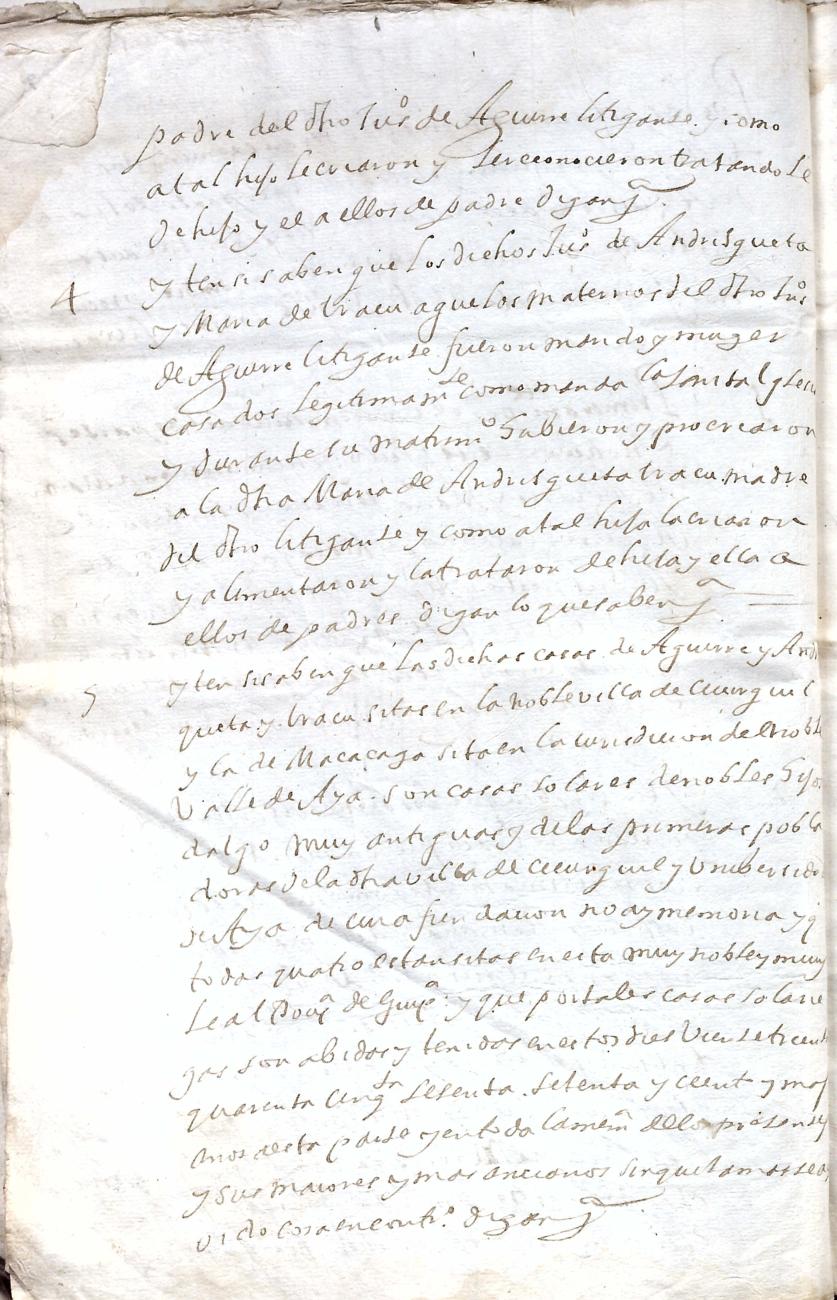 padre del dho Juº de Aguirre litigante y como
a tal hijo le criaron y le reconocieron tratandole
de hijo y el a ellos de padre digan
4 yten si saben que los dichos Juº de Andrisqueta
y Maria de Yracu aguelos maternos del dho Juº
de Aguirre litigante fueron marido y muger
casados legitimamte como manda la santa yglesia
y durante su matrimº hubieron y procrearon
a la dha Maria de Andrisqueta Yracu madre
del dho litigante y como a tal hija la criaron
y alimentaron y la trataron de hija y ella a
ellos de padres digan lo que saben
5 yten si saben que las dichas casas de Aguirre y Andris
queta y Yracu sitas en la noble villa de Ceurquil
y la de Macaçaga sita en la jurisdicion del noble
Valle de Aya son casas solares de nobles hijos
dalgo muy antiguas y de las primeras pobla
doras de la dha villa de Cecurquil y Unibersidad
de Aya de cuia fundacion no ay memoria y q
todas quatro estan sitas en esta muy noble y muy
Leal Prouª de Guipª y que por tales casas solarie
gas son abidas y tenidas en estos dies Veinte treinta
quarenta cinqta sesenta setenta y cient y mas
años a esta parte y en toda la memª de los presentes
y sus maiores y mas ancianos sin que jamas se a
uido cosa en contrº digan